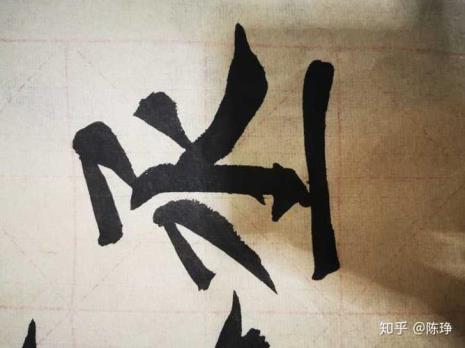 丞
知乎 @陈琤